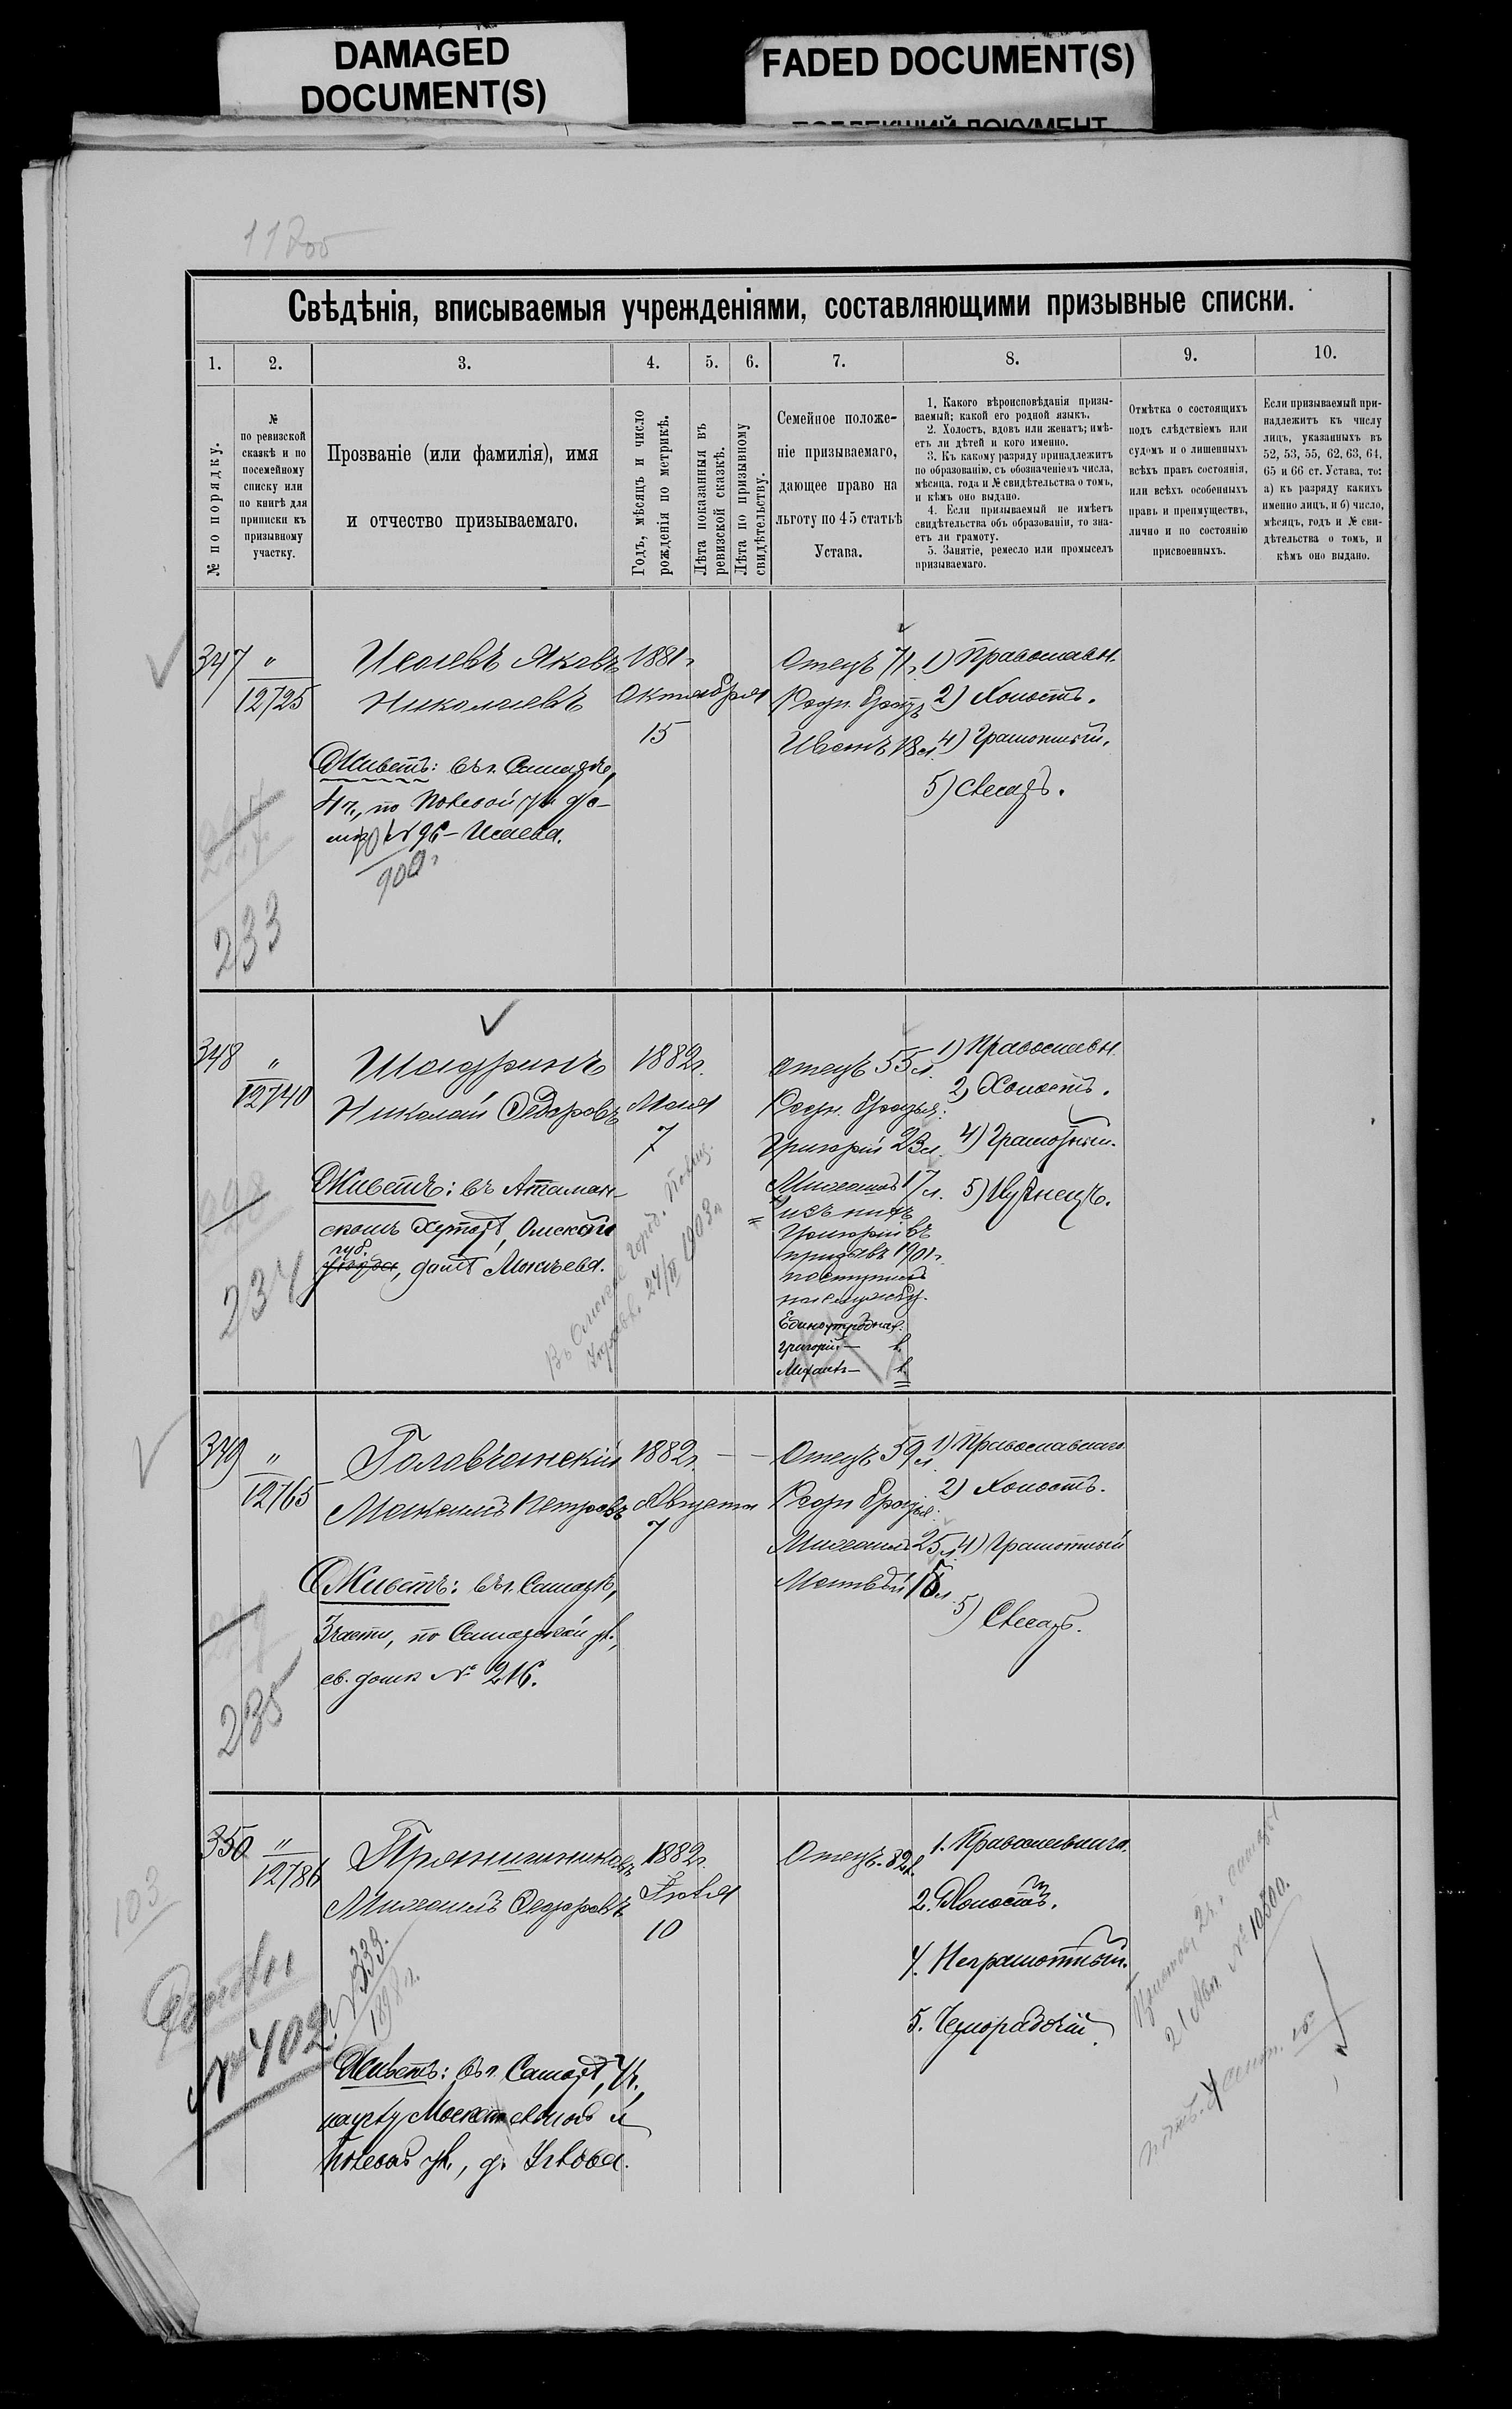 DAMAGED
DOCUMENT(S)
FADED DOCUMENT(S)
118об
Свѣдѣнія, вписываемыя учрежденіями, составляющими призывные списки.
1. 2. 3. 4. 5. 6. 7. 8. 9. 10.
№ по порядку.
№
по ревизской
сказкѣ и по
посемейному
списку или
по книгѣ для
приписки къ
призывному
участку.
Прозваніе (или фамилія), имя
и отчество призываемаго.
Годъ, мѣсяцъ и число
рожденія по метрикѣ.
Лѣта показанныя въ
ревизской сказкѣ.
Лѣта по призывному
свидѣтельству.
Семейное положе-
ніе призываемаго,
дающее право на
льготу по 45 статьѣ
Устава.
1. Какого вѣроисповѣданія призы-
ваемый; какой его родной языкъ.
2. Холостъ, вдовъ или женатъ; имѣ-
етъ ли дѣтей и кого именно.
3. Къ какому разряду принадлежитъ
по образованію, съ обозначеніемъ числа,
мѣсяца, года и № свидѣтельства о томъ,
и кѣмъ оно выдано.
4. Если призываемый не имѣетъ
свидѣтельства объ образованіи, то зна-
етъ ли грамоту.
5. Занятіе, ремесло или промыселъ
призываемаго.
Отмѣтка о состоящихъ
подъ слѣдствіемъ или
судомъ и о лишенныхъ
всѣхъ правъ состоянія,
или всѣхъ особенныхъ
правъ и преимуществъ,
лично и по состоянію
присвоенныхъ.
Если призываемый при-
надлежитъ къ числу
лицъ, указанныхъ въ
52, 53, 55, 62, 63, 64,
65 и 66 ст. Устава, то:
а) къ разряду какихъ
именно лицъ, и б) число,
мѣсяцъ, годъ и № сви-
дѣтельства о томъ, и
кѣмъ оно выдано.
347
"
12725
Исаевъ Яковъ
Николаевъ
Живетъ: въ г. Самарѣ,
4 ч., по Полевой ул. до-
№ 96 – Исаева.
900г.
233
1881г.
Октября
15
Отецъ 71 г.
Родн. братъ
Иванъ 18 л.
1) Православн.
2) Холостъ.
4) Грамотный.
5) Слесарь.
348
"
12740
Шадринъ
Николай Ѳедоровъ
Живетъ: въ Атаман-
скомъ Хуторѣ, Омской
губ.
234
1882г.
Мая
7
24/II 1903г.
Отецъ 55 л.
Родн. братья:
Григорій 23 л.
Михаилъ 17 л.
Изъ нихъ
Григорій въ
призывъ 1901г.
поступилъ
на службу.
Единоутробная:
Григорій —
Михаилъ —
1) Православн.
2) Холостъ.
4) Грамотный.
5) Кузнецъ.
349
"
12765
Головчанскій
Максимъ Петровъ
Живетъ: въ г. Самарѣ,
3 части, по Самарской ул.,
св. домъ № 216.
235
1882г.
Августа
7
Отецъ 59 л.
Родн. братья:
Михаилъ 25 л.
Матвѣй
1) Православнаго
2) Холостъ.
4) Грамотный
5) Слесарь.
350
"
12786
Пряничниковъ
Михаилъ Ѳедоровъ
333.
1898г.
103
№ 402
Живетъ: въ г. Самарѣ, 4 ч.,
на углу Москательной и
Полевой ул., д. Углова.
1882г.
Іюля
10
Отецъ. 82 л.
1. Православнаго.
2. Холостъ.
4. Неграмотный.
5. Чернорабочій.
№ 10500.